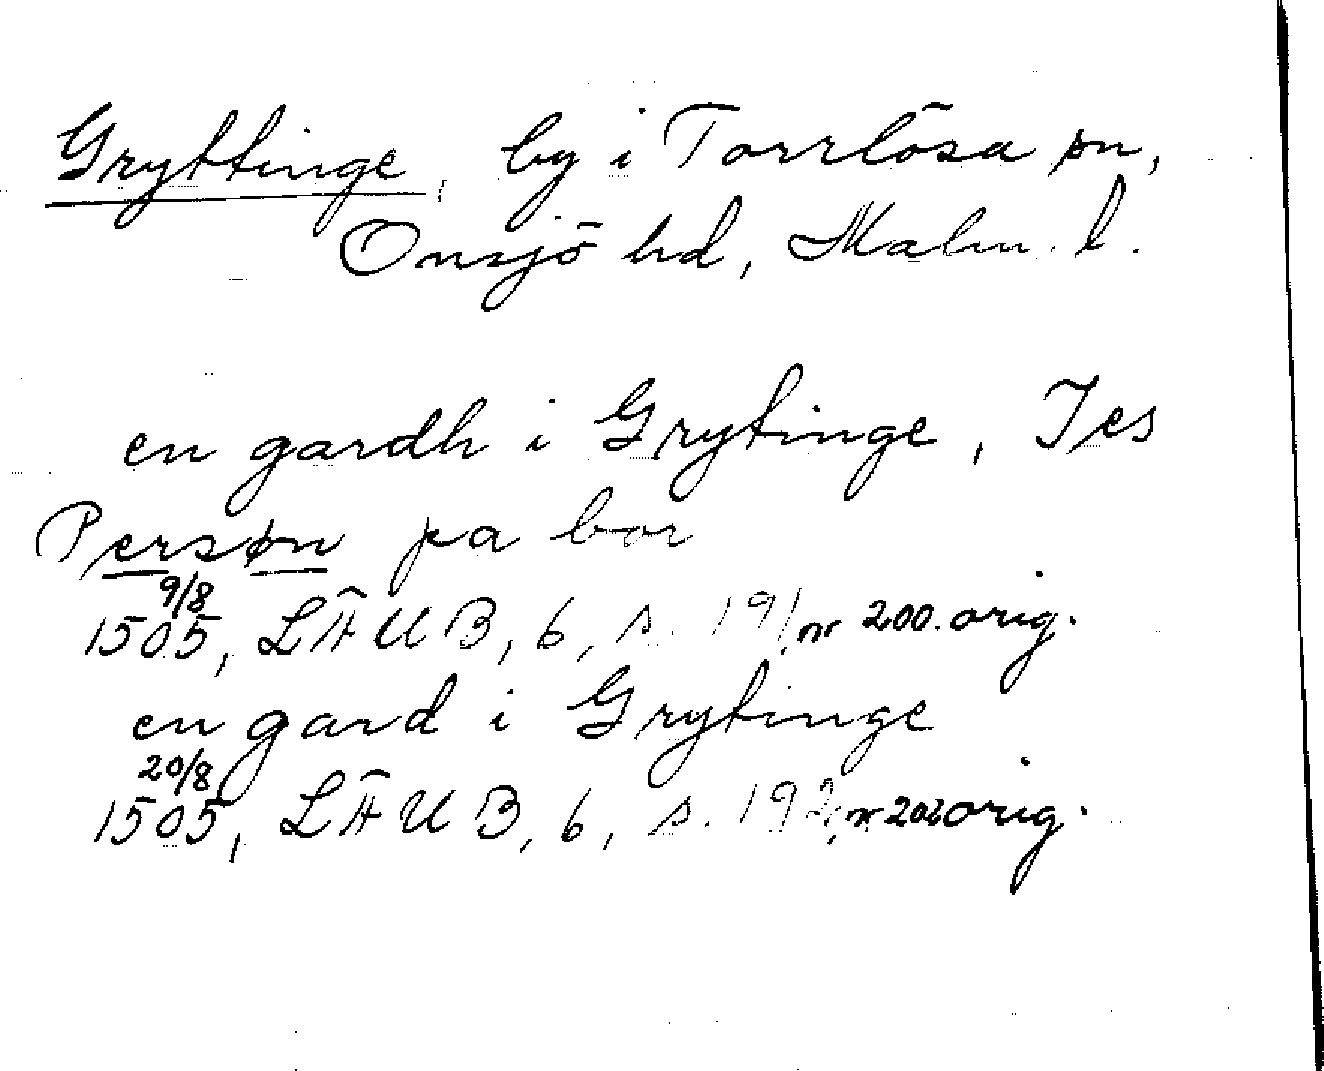 Gryttinge, by i Torrlösa sn,
Onsjö hd, Malm. l.
en gardh i Grytinge, Jes
Perssøn pa bor
9/8
1505, LÄUB, 6, s. 191, nr 200. orig.
en gard i Grytinge
20/8
1505, LÄUB, 6, s. 192, nr 202 orig.